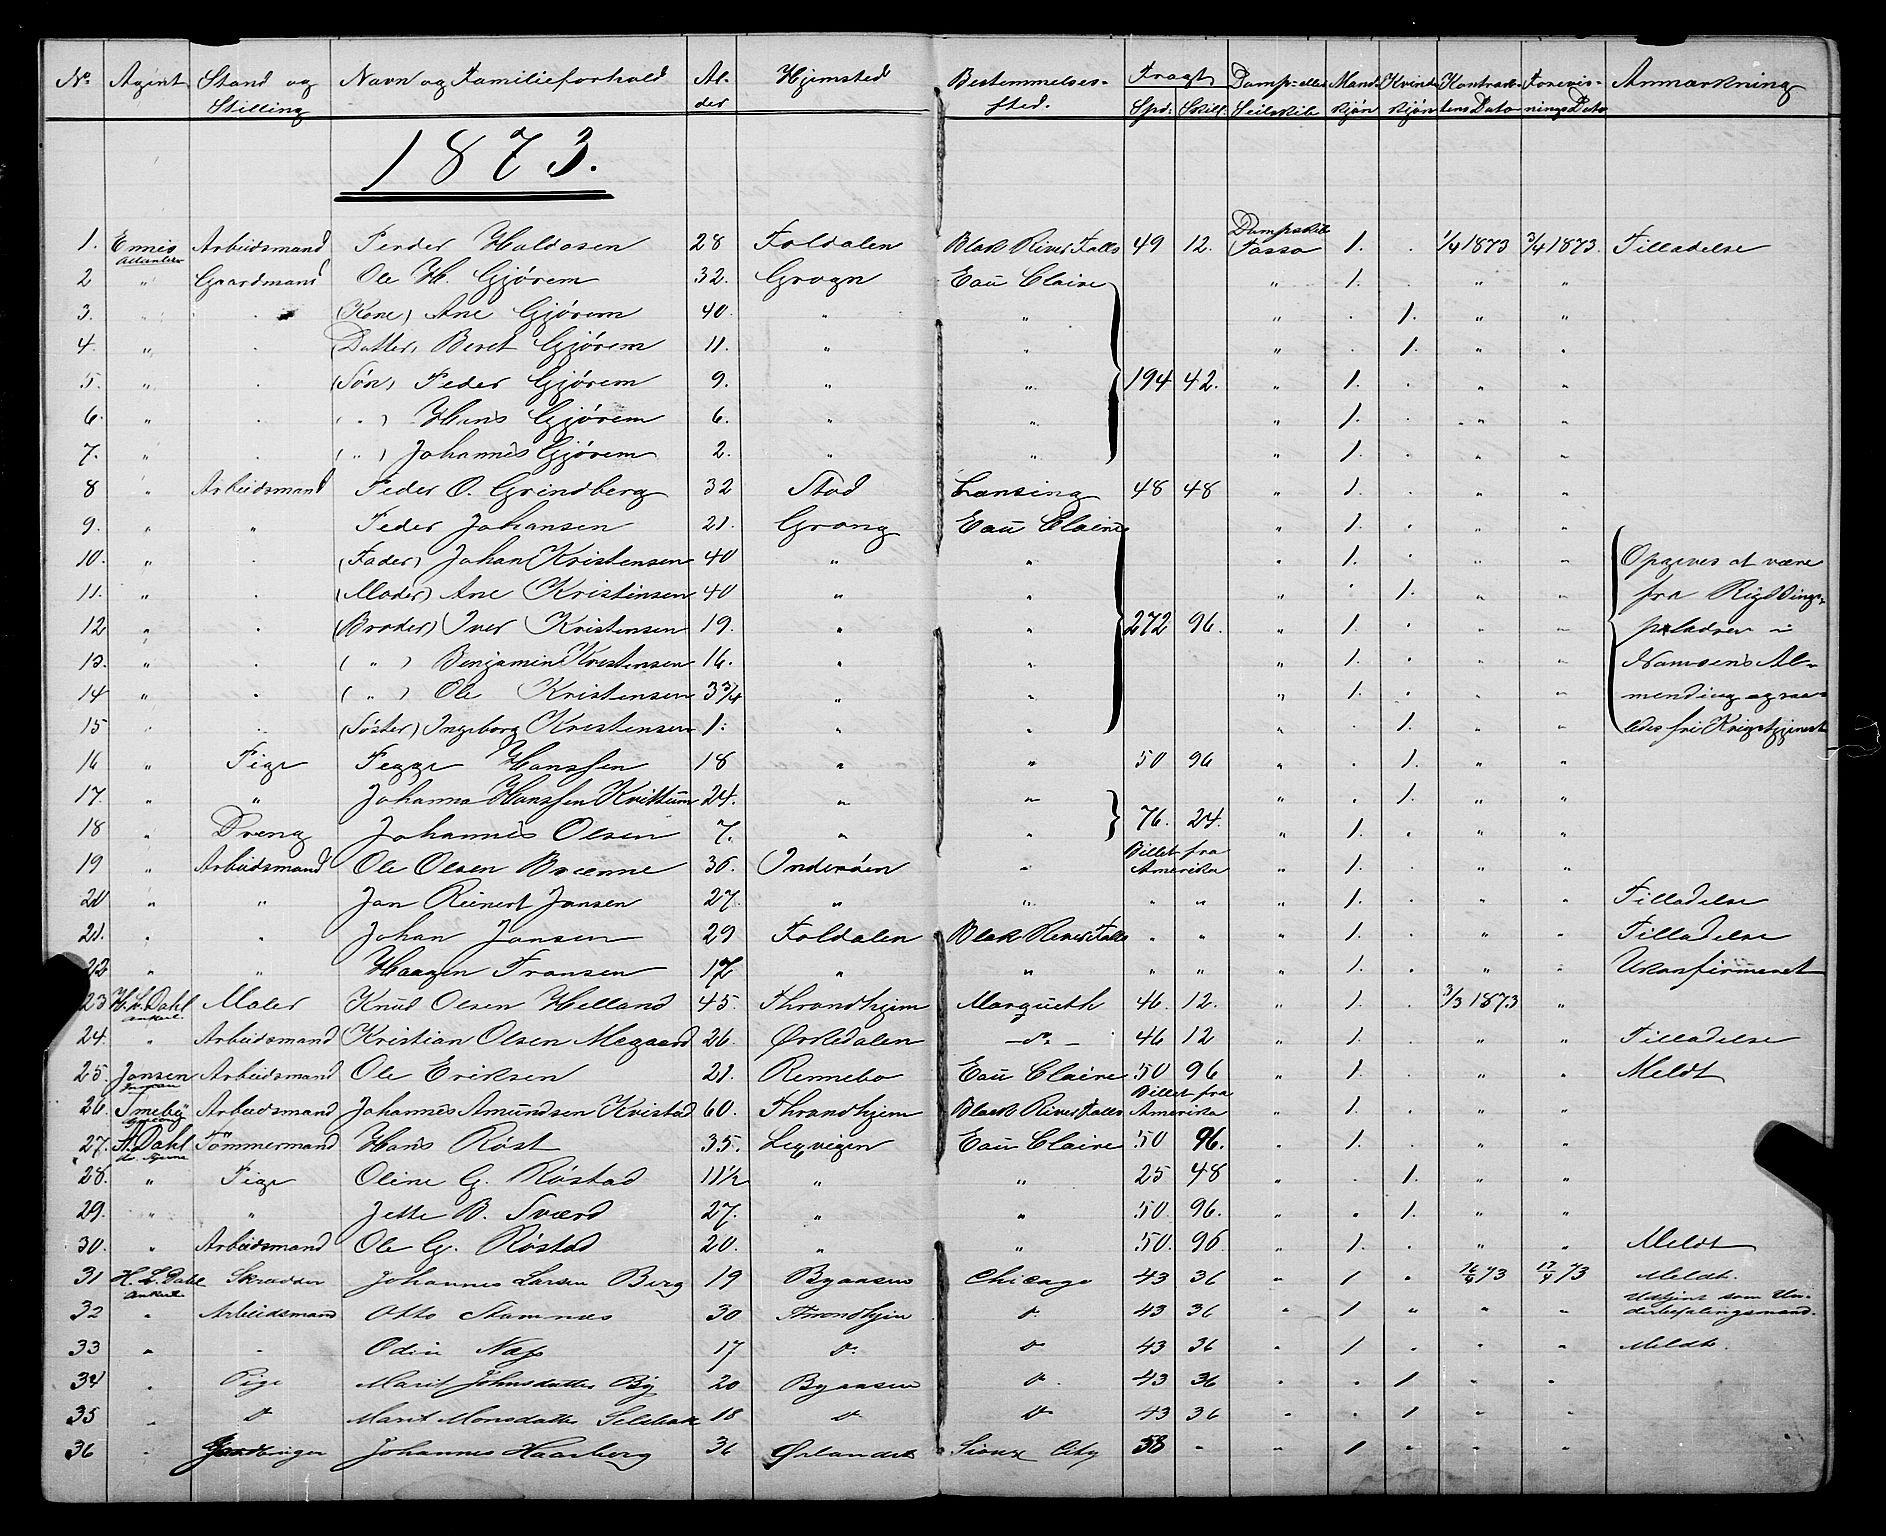 No. Agent Stand og Stilling Navn og Familieforhold Alder Hjemsted Bestemmelsessted. Fragt Spd. Skill. Damp- eller Seilskib Mandkjøn Kvindekjøn Kontraktens Dato Forevisnings Dato Anmærkning
1873.
1. Ennis Arbeidsmand Peder Haldosen 28 Foldalen Black River Falls 49 12. Dampskib Tasso 1. . 1/4 1873 3/4 1873. Tilladelse
2 " Gaardmand Ole H. Gjørem 32. Grogn Eau Claire " 1. . " "
3. " . (Kone) Ane Gjørem 40. " " " . 1. " "
4. " . (Datter) Beret Gjørem 11. " " " . 1. " "
5. " . (Søn) Peder Gjørem 9. " " 194 42. " 1. . " "
6. " . ( " ) Hans Gjørem 6. " " " 1. . " "
7. " . ( " ) Johannes Gjørem 2. " " " 1. . " "
8 " Arbeidsmand Peder O. Grindberg 32 Stod Lansing 48 48 " 1. . " "
9. " " Peder Johansen 21. Grong Eau Claire " 1. . " "
10. " . (Fader) Johan Kristensen 40 " " " 1. . " " Opgives at være
11. " . (Moder) Ane Kristensen 40 " " " . 1. " " fra
12 " . (Broder) Iver Kristensen 19. " " 272 96. " 1. . " "
13. " . ( " ) Benjamin Kristensen 16. " " " 1. . " " Namsens Al-
14 " . ( " ) Ole Kristensen 3 3/4 " " " 1. . " " mending og saa-
15 " . (Søster) Ingeborg Kristensen 1. " " " . 1. " " ledes fri Krigstjenest
16 " Pige Pegge Hanssen 18 " " 50 96 " . 1. " "
17. " " Johanna Hanssen Kvittum 24. " " " . 1. " "
18 " Dreng Johannes Olsen 7. " " 76. 24. " 1. . " "
19 " Arbeidsmand Ole Olsen Brenne 36. Inderøen " Billet fra Amerika " 1. . " "
20 " " Jon Reinert Jansen 27. " " " " " 1. . " " Tilladelse
21. " " Johan Jansen 29 Foldalen Black River Falls " " " 1. . " " Tilladelse
22 " " Haagen Fransen 17 " " " " " 1. . " " Ukonfirmeret
23 H. L. Dahl Anker L. Maler Knud Olsen Helland 45. Thrandhjem Marqueth 46. 12. " 1. . 3/3 1873 "
24. " Arbeidsmand Kristian Olsen Megaard 26. Ørkedalen - do - 46 12 " 1. . " " Tilladelse
25. Jansen Inman Arbeidsmand Ole Eriksen 21. Rennebo Eau Claire 50 96 " 1. . " " Meldt
26. Smeby Arbeidsmand Johannes Amundsen Kvistad 60. Thrandhjem Black River Falls Billet fra Amerika " 1. . " "
27. A. Dahl Tømmermand Hans Røst 35. Lexvigen Eau Claire 50 96. " 1. . " "
28. " Pige Oline G. Røstad 11 1/2 " " 25 48 " . 1. " "
29. " " Jette B. Sværd 27. " " 50. 96. " " 1. " "
30. " Arbeidsmand Ole G. Røstad 20. " " 50. 96 " 1. . " " Meldt
31 H. L. Dahl Anker L. Skrædder Johannes Larsen Berg 19 Bynæsset Chicago 43 36 " 1 " 16/4 73 17/4 73 Meldt.
32 " Arbeidsmand Otto Stamnæs 30 Trondhjem do 43 36 " 1 " " " Udtjent som Underbefalingsmand.
33 " " Odin Næss 17 do do 43 36 " 1 . " " Meldt.
34 " Pige Marit Johnsdatter By 20 Bynæsset do 43 36 " " 1 " "
35 " do Marit Monsdatter Selbæk 18 do do 43 36 " " 1 " "
36 " Jordbruger Johannes Haarberg 36 Ørlandet Sioux City 53 - " 1 " " "